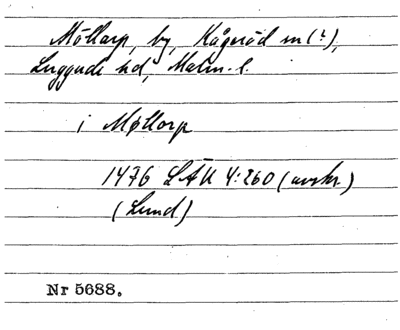 Möllarp, by, Kågeröd sn (?),
Luggude hd, Malm. l.
i Møllorp
1476 LÄU 4:260 (avskr.)
(Lund)
Nr 5688.